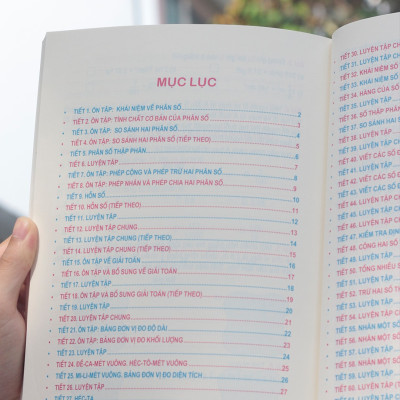 MỤC LỤC
TIẾT 1. ÔN TẬP: KHÁI NIỆM VỀ PHÂN SỐ 2
TIẾT 2. ÔN TẬP: TÍNH CHẤT CƠ BẢN CỦA PHÂN SỐ 3
TIẾT 3. ÔN TẬP: SO SÁNH HAI PHÂN SỐ 4
TIẾT 4. ÔN TẬP: SO SÁNH HAI PHÂN SỐ (TIẾP THEO) 5
TIẾT 5. PHÂN SỐ THẬP PHÂN 6
TIẾT 6. LUYỆN TẬP 6
TIẾT 7. ÔN TẬP: PHÉP CỘNG VÀ PHÉP TRỪ HAI PHÂN SỐ 7
TIẾT 8. ÔN TẬP: PHÉP NHÂN VÀ PHÉP CHIA HAI PHÂN SỐ 8
TIẾT 9. HỖN SỐ 9
TIẾT 10. HỖN SỐ (TIẾP THEO) 10
TIẾT 11. LUYỆN TẬP 11
TIẾT 12. LUYỆN TẬP CHUNG 12
TIẾT 13. LUYỆN TẬP CHUNG (TIẾP THEO) 13
TIẾT 14. LUYỆN TẬP CHUNG (TIẾP THEO) 14
TIẾT 15. ÔN TẬP VỀ GIẢI TOÁN 15
TIẾT 16. ÔN TẬP VÀ BỔ SUNG VỀ GIẢI TOÁN 16
TIẾT 17. LUYỆN TẬP 17
TIẾT 18. ÔN TẬP VÀ BỔ SUNG GIẢI TOÁN (TIẾP THEO) 18
TIẾT 19. LUYỆN TẬP 19
TIẾT 20. LUYỆN TẬP CHUNG 21
TIẾT 21. ÔN TẬP: BẢNG ĐƠN VỊ ĐO ĐỘ DÀI 22
TIẾT 22. ÔN TẬP: BẢNG ĐƠN VỊ ĐO KHỐI LƯỢNG 23
TIẾT 23. LUYỆN TẬP 24
TIẾT 24. ĐỀ-CA-MÉT VUÔNG. HÉC-TÔ-MÉT VUÔNG 25
TIẾT 25. MI-LI-MÉT VUÔNG. BẢNG ĐƠN VỊ ĐO DIỆN TÍCH 26
TIẾT 26. LUYỆN TẬP 27
TIẾT 27. HÉC-TA
TIẾT 30. LUYỆN TẬP
TIẾT 31. LUYỆN TẬP
TIẾT 32. KHÁI NIỆM SỐ
TIẾT 33. KHÁI NIỆM SỐ
TIẾT 34. HÀNG CỦA SỐ
TIẾT 35. LUYỆN TẬP
TIẾT 36. SỐ THẬP PHÂN
TIẾT 37. SO SÁNH HAI SỐ
TIẾT 38. LUYỆN TẬP
TIẾT 39. LUYỆN TẬP
TIẾT 40. VIẾT CÁC SỐ
TIẾT 41. LUYỆN TẬP
TIẾT 42. VIẾT CÁC SỐ
TIẾT 43. VIẾT CÁC SỐ
TIẾT 44. LUYỆN TẬP
TIẾT 45. LUYỆN TẬP
TIẾT 46. LUYỆN TẬP
TIẾT 47. KIỂM TRA ĐỊNH
TIẾT 48. CỘNG HAI SỐ
TIẾT 49. LUYỆN TẬP
TIẾT 50. TỔNG NHIỀU
TIẾT 51. LUYỆN TẬP
TIẾT 52. TRỪ HAI SỐ
TIẾT 53. LUYỆN TẬP
TIẾT 54. LUYỆN TẬP
TIẾT 55. NHÂN MỘT SỐ